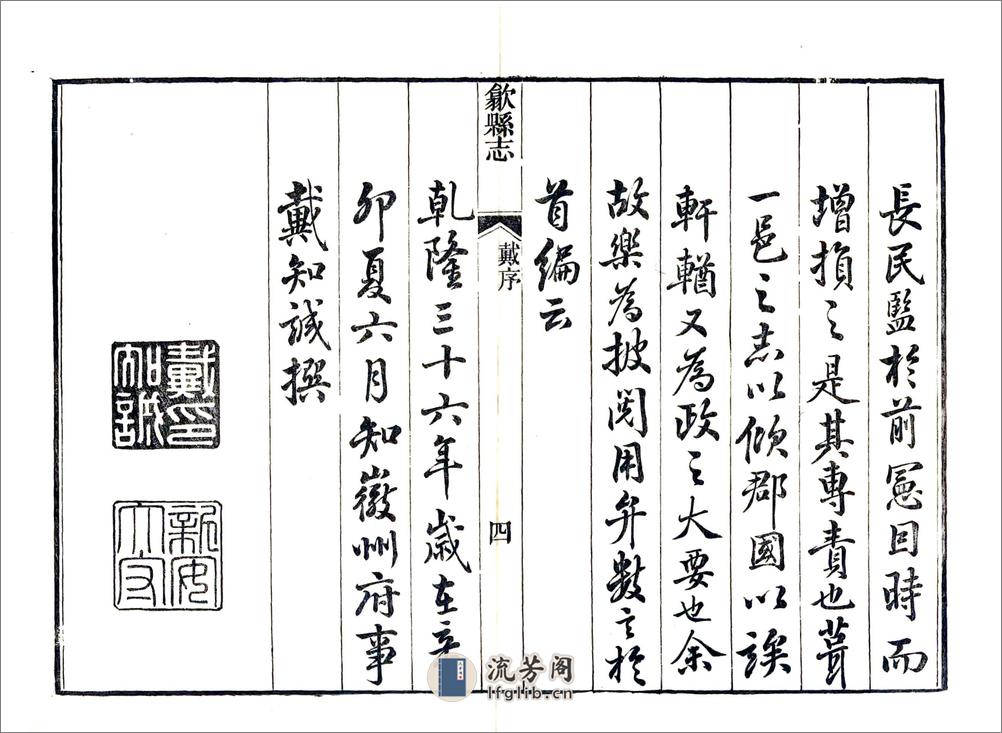 長民監於前憲因時而
增損之是其專責也葺
一邑之志以郡國以竢
軒輶又為政之大要也余
故樂為披閱用弁數言於
首編云
歙縣志 戴序 四
乾隆三十六年歲在辛
卯夏六月知徽州府事
戴知誠撰
戴印知誠
新安太守
流芳阁
lfglib.cn